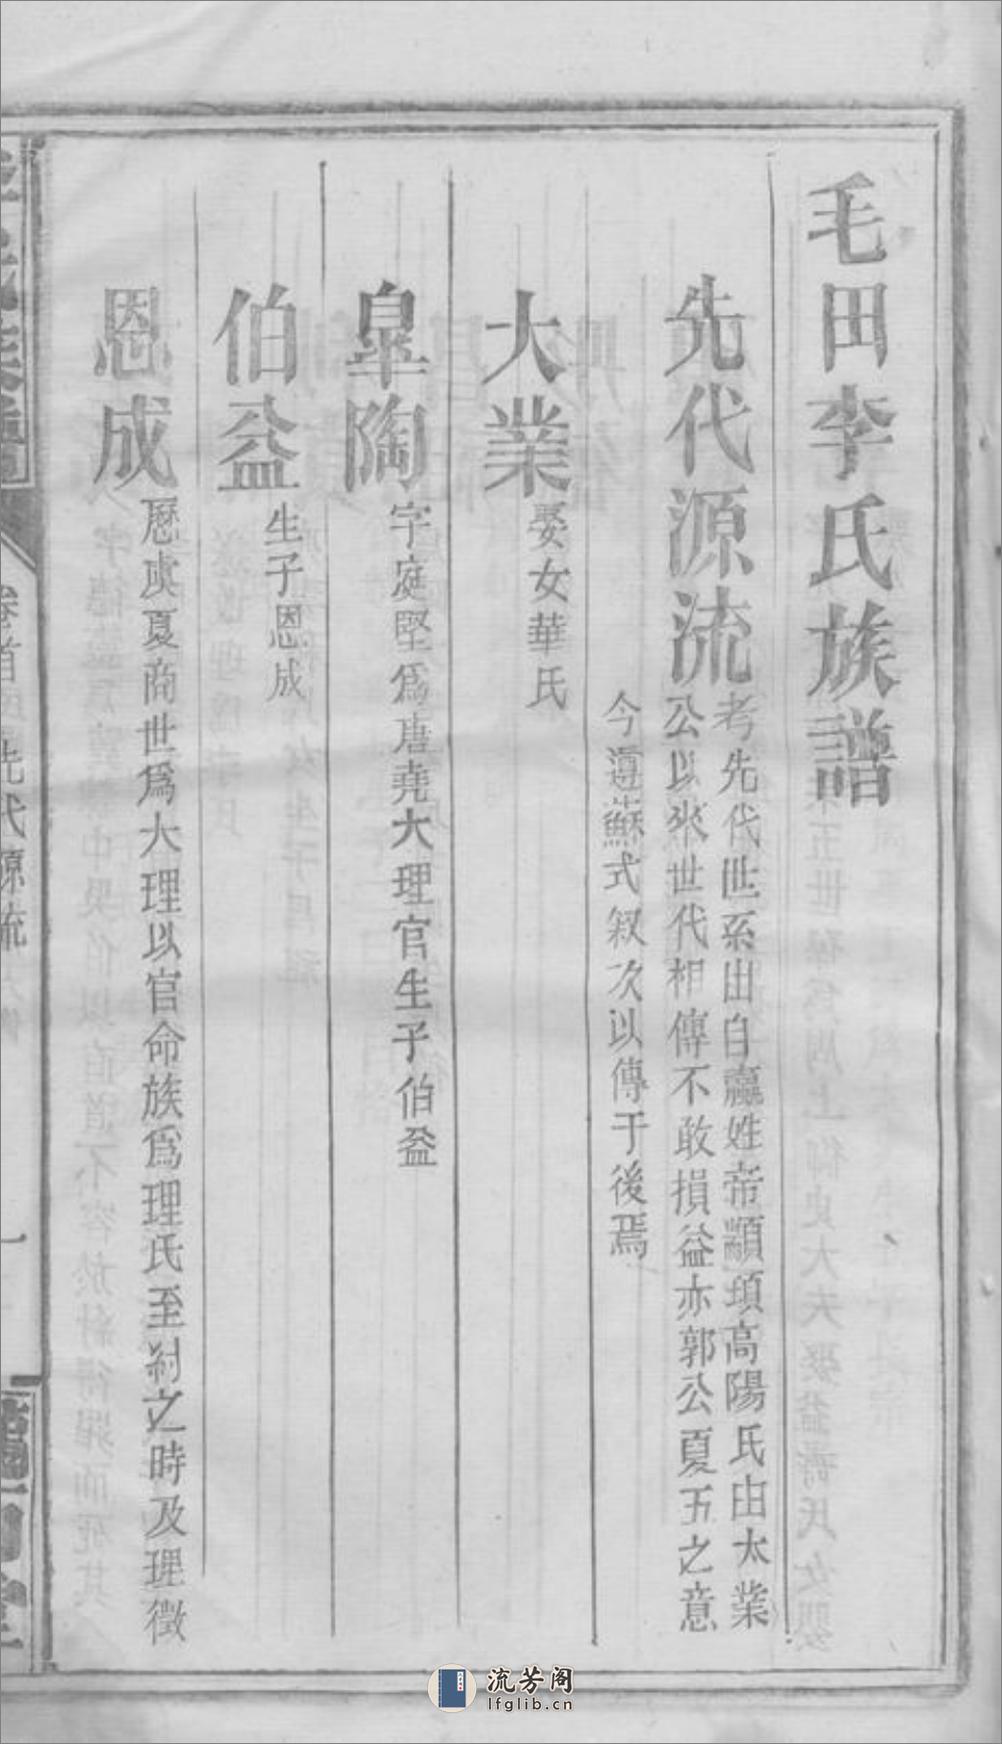 毛田李氏族譜
先代源流
考先代世系由自瀛姓帝顓頊高陽氏由太業
公以來世代相傳不敢損益亦郭公夏五之意
今遵蘇式叙次以傳于後焉
大業
娶女華氏
皐陶
字庭堅爲唐堯大理官生子伯益
伯益
生子恩成
恩成
歷虞夏商世爲大理以官命族爲理氏至紂之時及理徵
卷首
先代源流
一
流芳阁
lfglib.cn